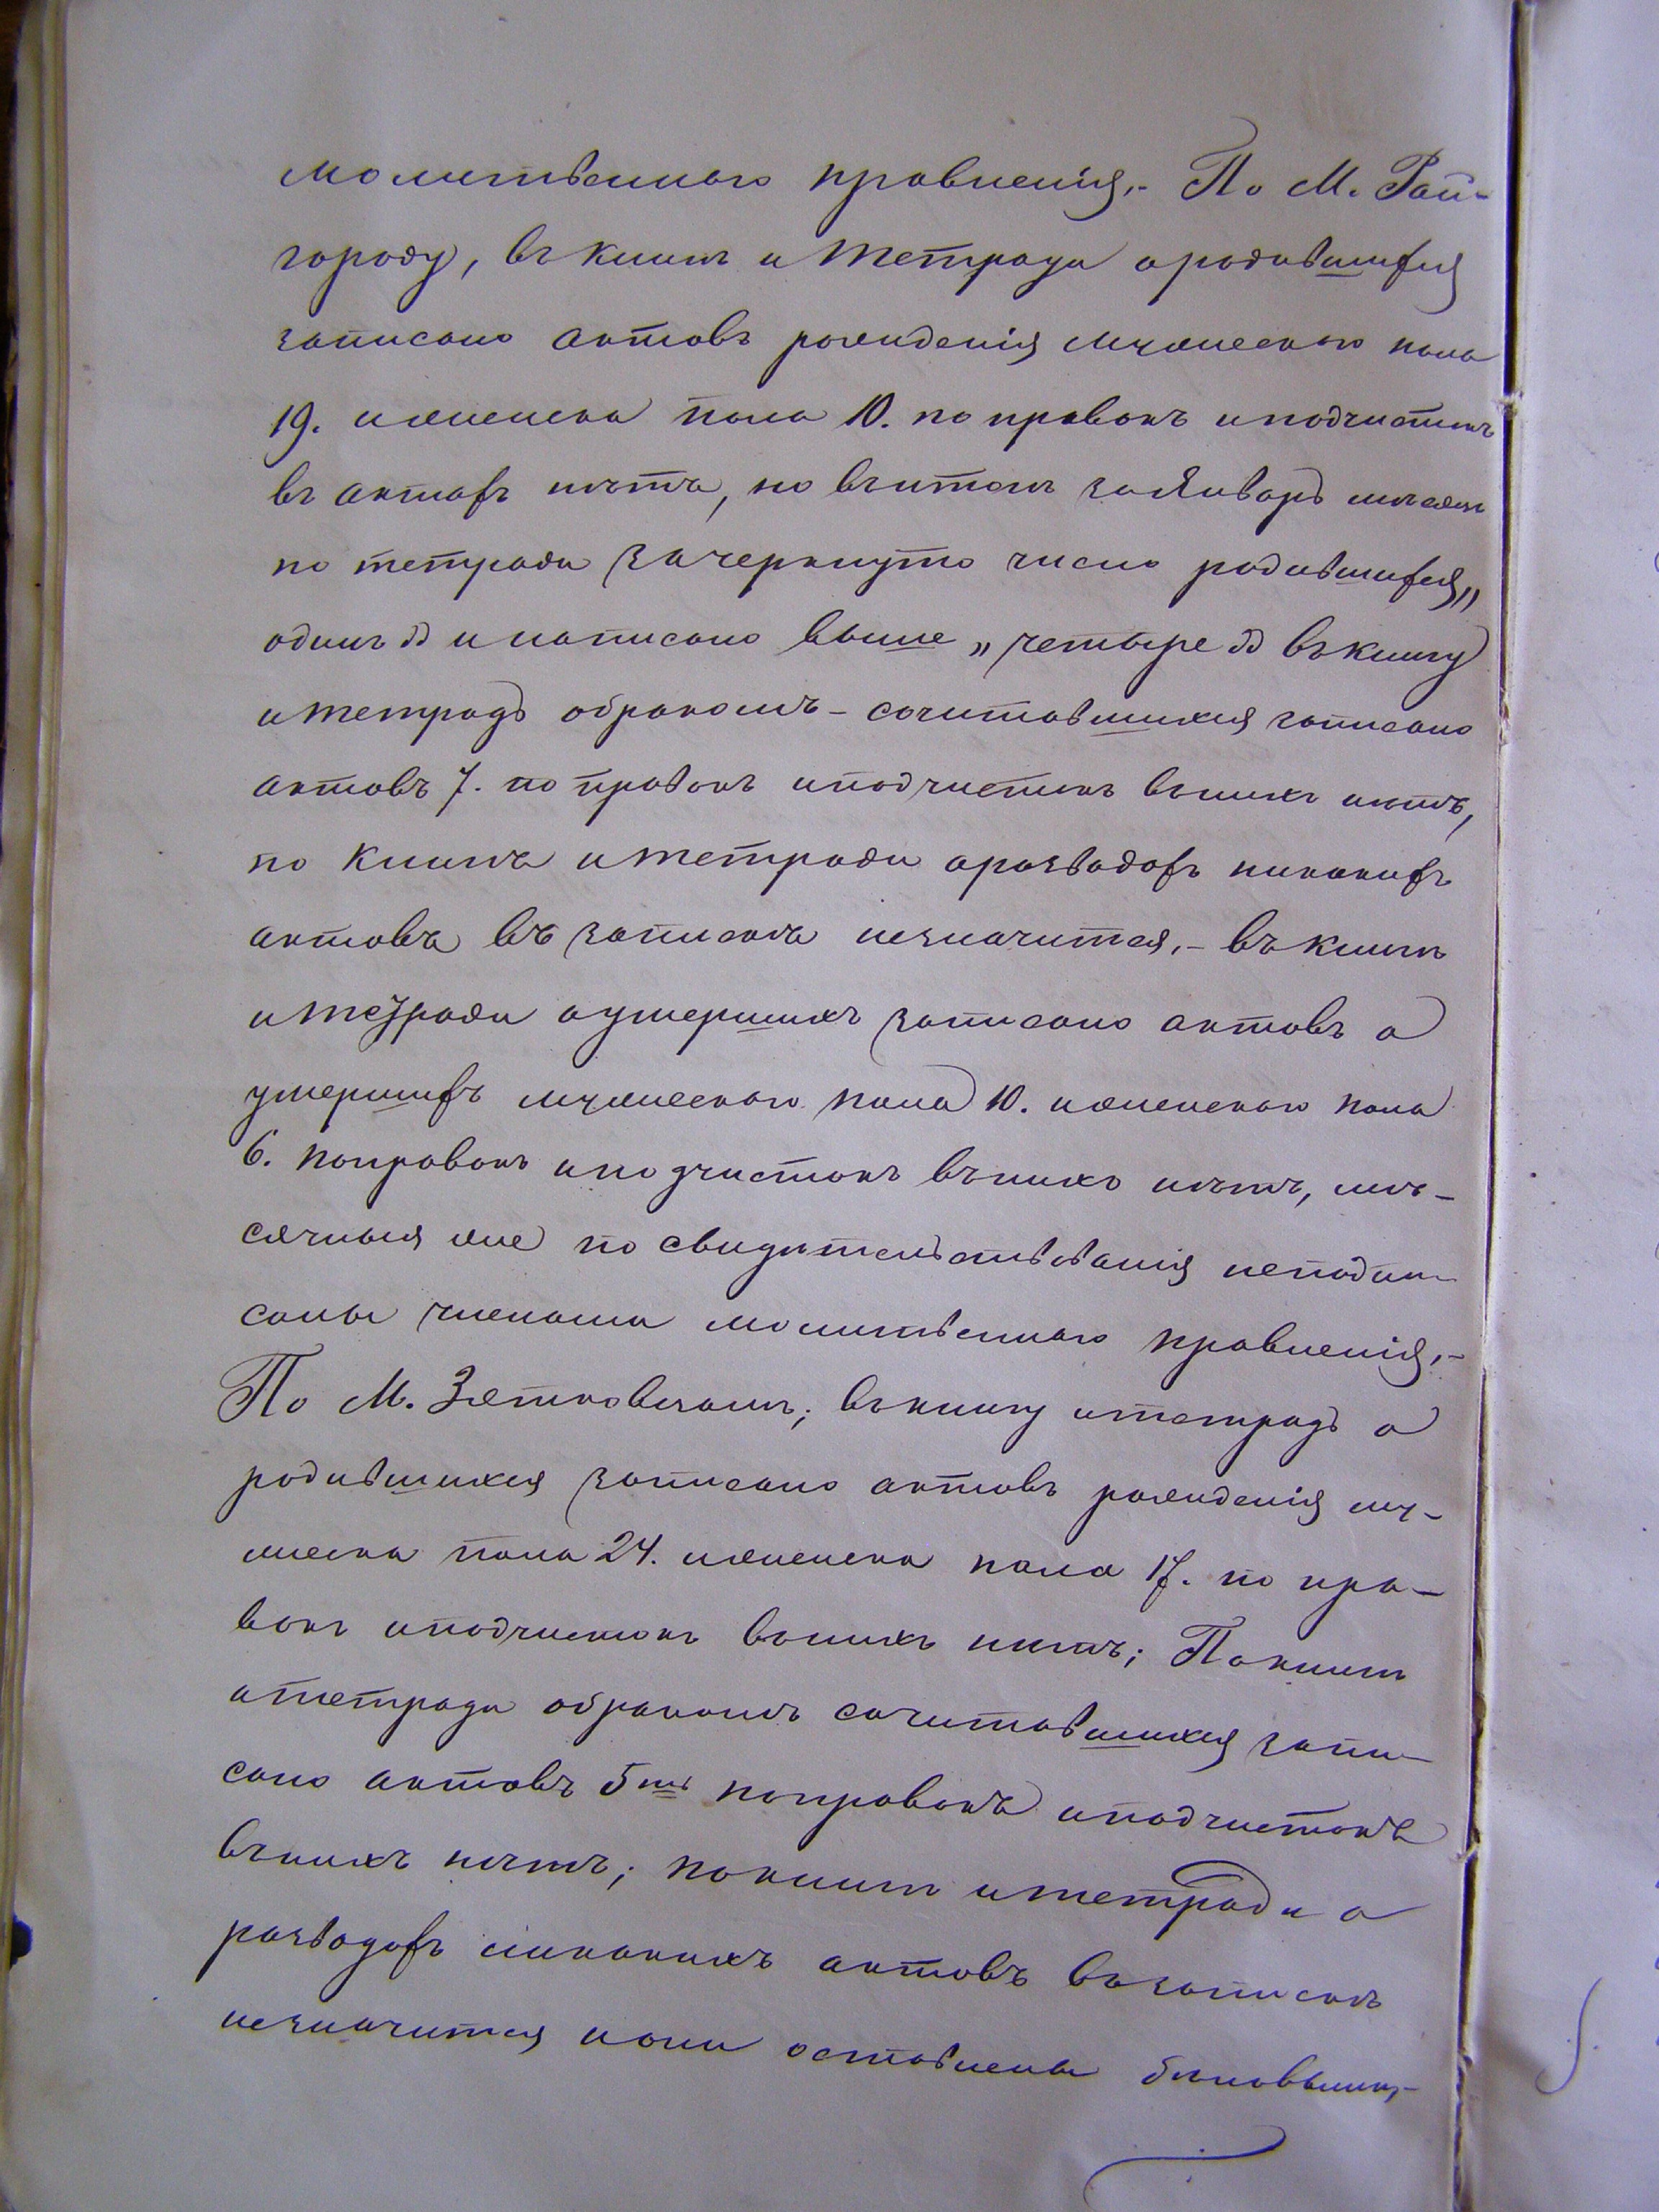 молитвеннаго правленія,- По М. Рай-
городу, въ книгѣ и тетради ородившихся
записано актовъ рожденія мужескаго пола
19. иженска пола 10. по правокъ иподчистокъ
въ актахъ нѣтъ, но въитогѣ заЯнварь мѣсяцъ
по тетради зачеркнуто число родившихся „
одинъ " и написано выше „ четыре " въкнигу
и тетрадь обракомъ - сочитавшихся записано
актовъ 7. по правокъ иподчистокъ вънихъ нѣтъ,
по книгѣ и тетради оразводахъ никакихъ
актовъ въ запискѣ незначится,- въ книгѣ
и тетради оумершихъ записано актовъ о
умершихъ мужескаго пола 10. иженскаго пола
6. поправокъ иподчистокъ вънихъ нѣтъ, мѣ-
сячныя же по свидѣтельствованія неподпи-
саны членами молитвеннаго правленія,-
По М. Зятковцамъ; вкнигу итетрадь о
родившихся записано актовъ рожденія му-
жеска пола 24. иженска пола 17. по пра-
вокъ иподчистокъ вънихъ нѣтъ; Покнигѣ
итетради обракомъ сочитавшихся запи-
сано актовъ 5ть поправокъ иподчистокъ
вънихъ нѣтъ; покнигѣ итетради о
разводахъ никакихъ актовъ възапискѣ
незначится иони оставлены бѣловыми,-